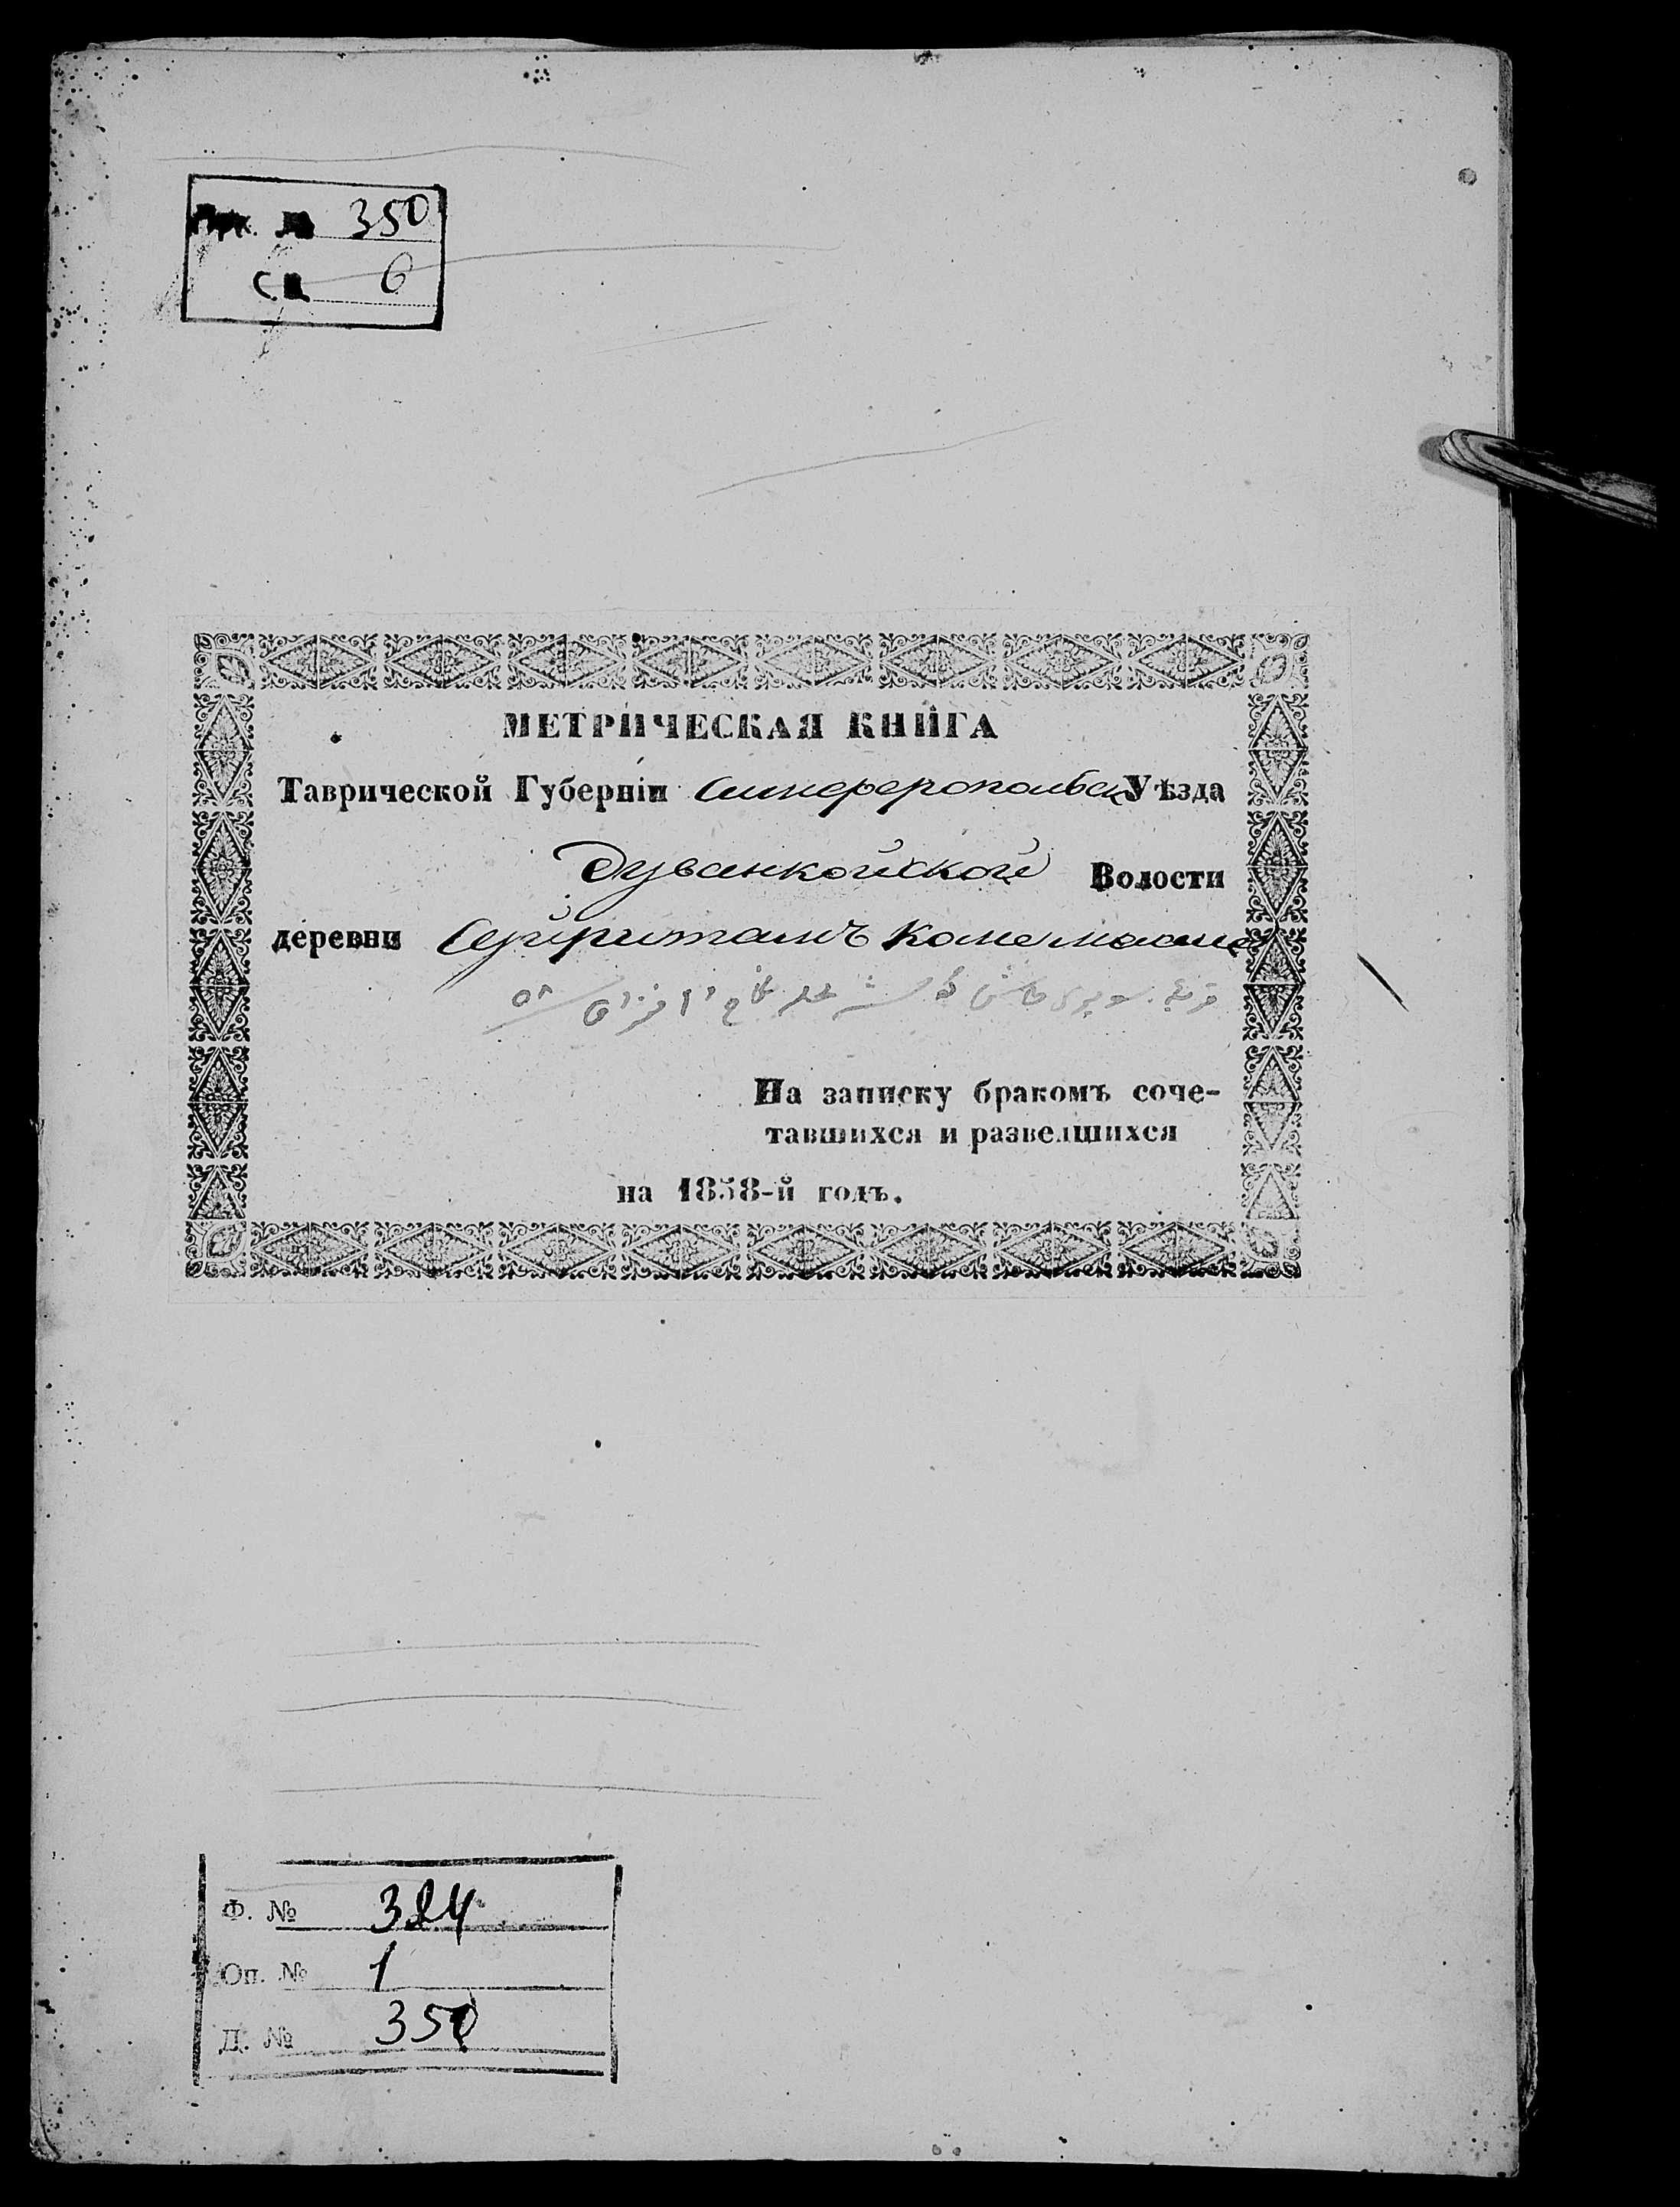 Арх. № 350
св 6
МЕТРИЧЕСКАЯ КНИГА
Таврической Губерніи Симферопольск Уѣзда
Дуванкойской Волости
деревни
قريهٔ
۵۸
На записку бракомъ соче-
тавшихся и разведшихся
на 1858-й годъ.
Ф. № 324
Оп. № 1
Д. № 350